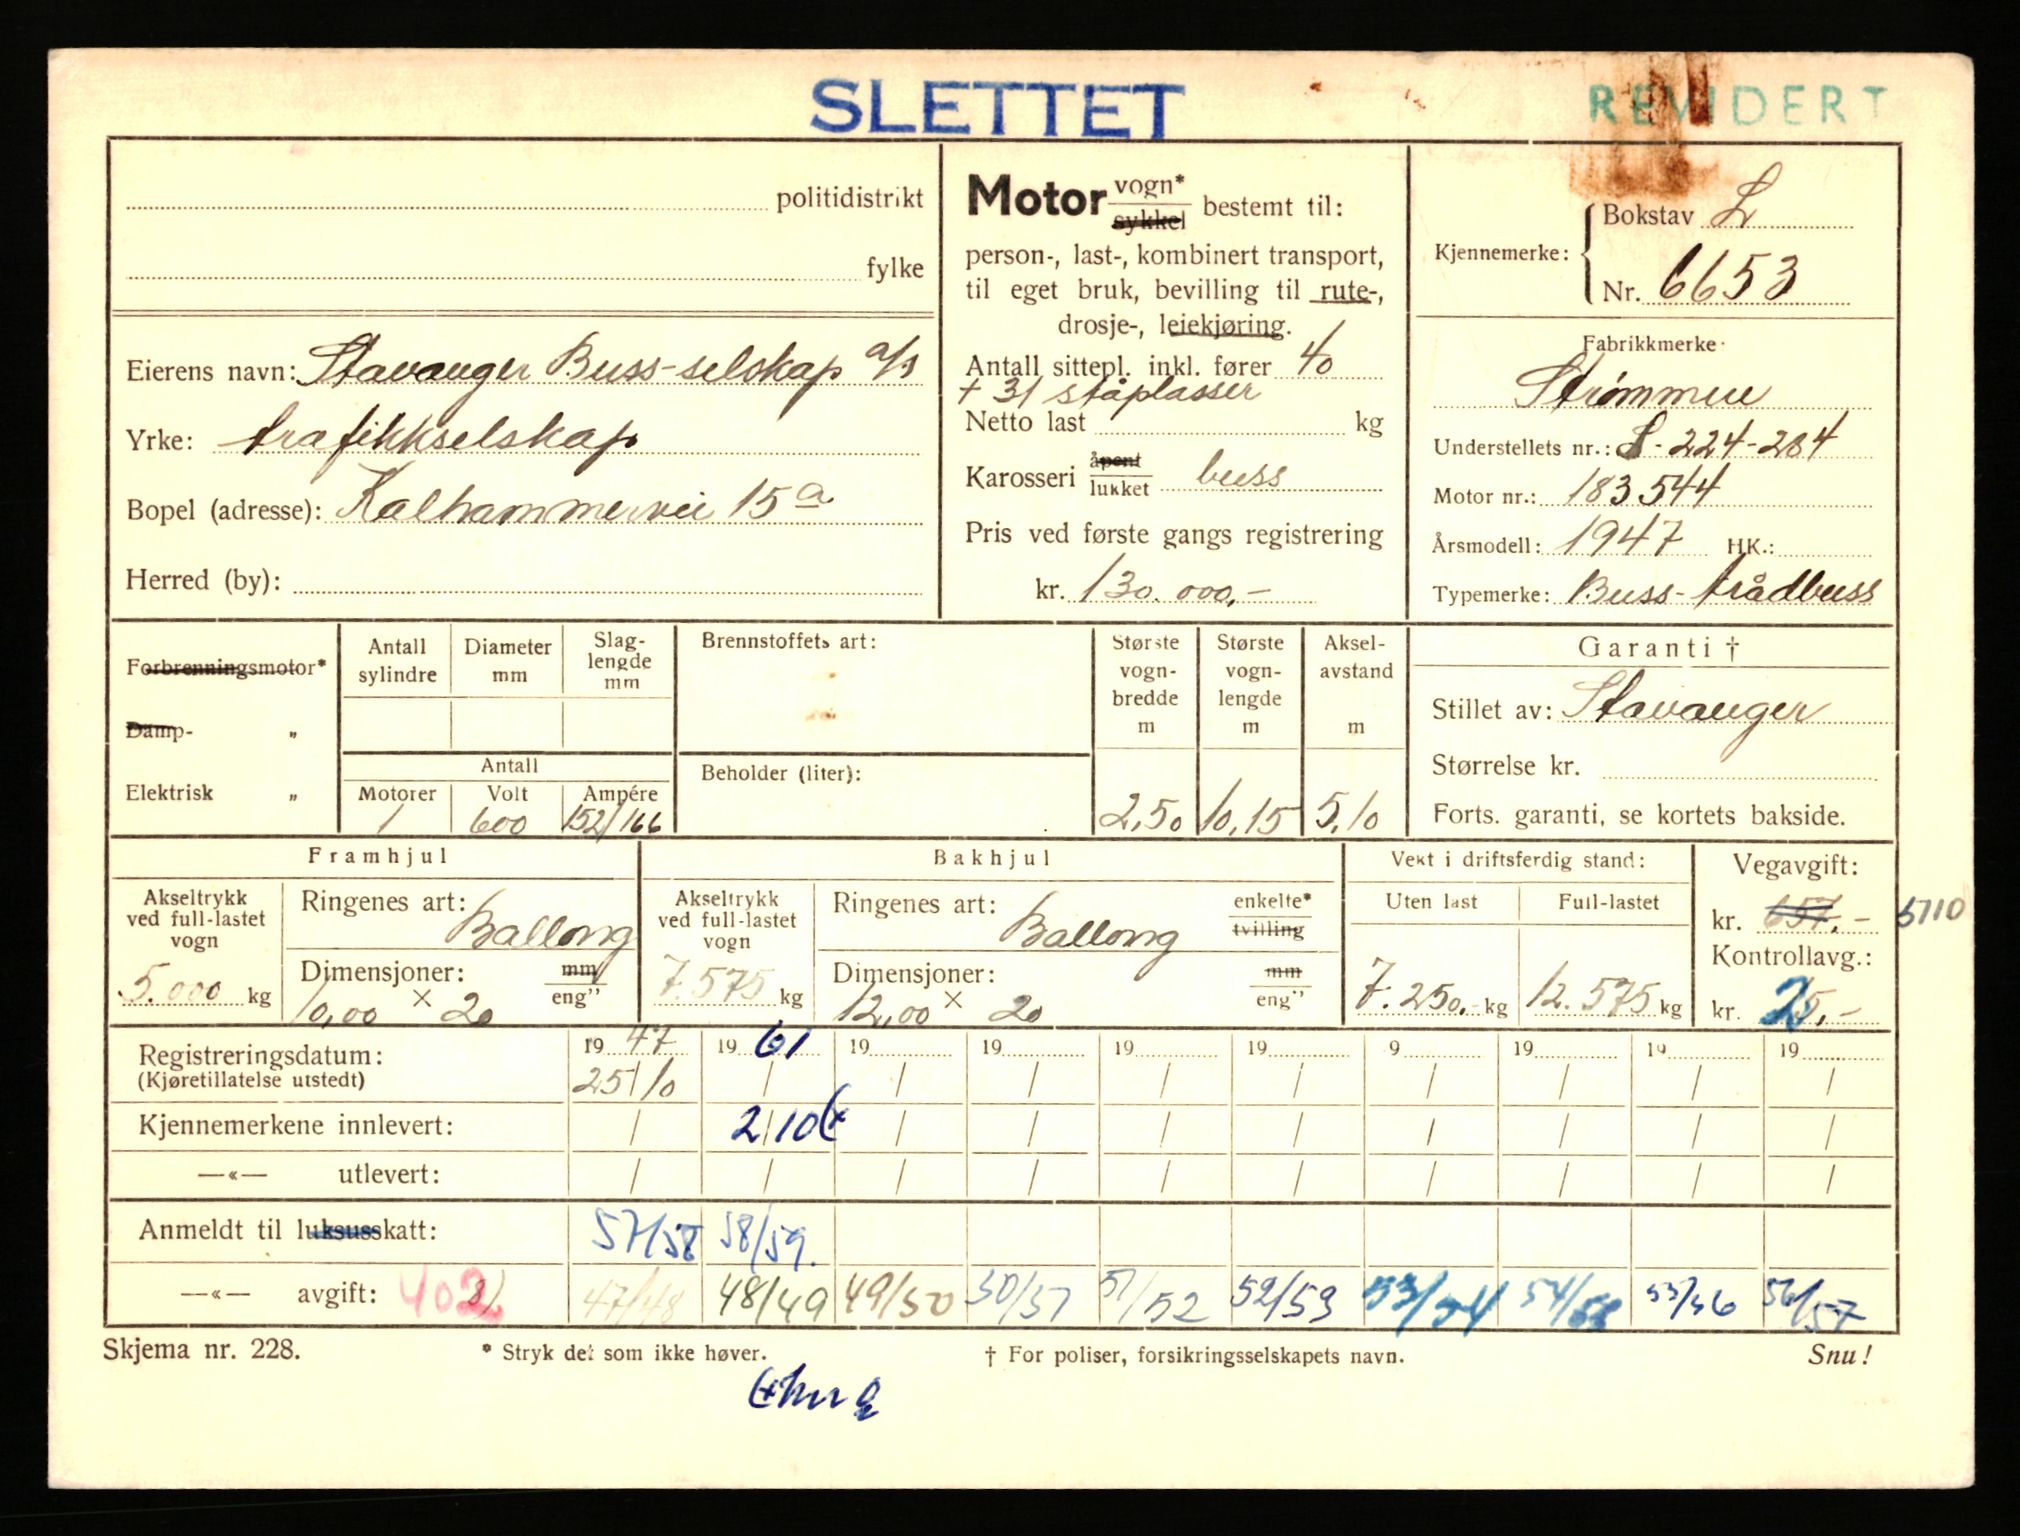 SLETTET
REVIDERT
politidistrikt
fylke
Eierens navn: Stavanger Buss-selskap a/s
Yrke: trafikkselskap
Bopel (adresse): Kalhammervei 15a
Herred (by):
Motor vogn* / sykkel bestemt til:
person-, last-, kombinert transport,
til eget bruk, bevilling til rute-,
drosje-, leiekjøring.
Antall sittepl. inkl. fører 40
+ 31 ståplasser
Netto last kg
Karosseri åpent / lukket buss
Pris ved første gangs registrering
kr. 130.000,-
Kjennemerke: Bokstav L
Nr. 6653
Fabrikkmerke:
Strømmen
Understellets nr.: S-224-284
Motor nr.: 183544
Årsmodell: 1947 HK.:
Typemerke: Buss-trådbuss
Forbrenningsmotor*
Damp- „
Elektrisk „
Antall sylindre
Diameter mm
Slag-lengde mm
Antall
Motorer Volt Ampére
1 600 152/166
Brennstoffets art:
Beholder (liter):
Største vogn-bredde m
2,50
Største vogn-lengde m
10,15
Aksel-avstand m
5,10
Garanti †
Stillet av: Stavanger
Størrelse kr.
Forts. garanti, se kortets bakside.
Framhjul
Akseltrykk ved full-lastet vogn
5.000 kg
Ringenes art: Ballong
Dimensjoner: mm / eng”
10,00 x 20
Bakhjul
Akseltrykk ved full-lastet vogn
7.575 kg
Ringenes art: Ballong enkelte* / tvilling
Dimensjoner: mm / eng”
12,00 x 20
Vekt i driftsferdig stand:
Uten last Full-lastet
7.250,- kg 12.575 kg
Vegavgift:
kr. 657,- 5110
Kontrollavg.:
kr. 25,-
Registreringsdatum: 1947 1961 19 19 19 19 9 19 19 19
(Kjøretillatelse utstedt) 25/10 / / / / / / / / /
Kjennemerkene innlevert: / 2/10 / / / / / / / /
—«— utlevert: / / / / / / / / / /
Anmeldt til luksusskatt: 57/58 58/59.
—«— avgift: 402 47/48 48/49 49/50 50/51 51/52 52/53 53/54 54/55 55/56 56/57
Skjema nr. 228.
* Stryk det som ikke høver.
† For poliser, forsikringsselskapets navn.
Snu!